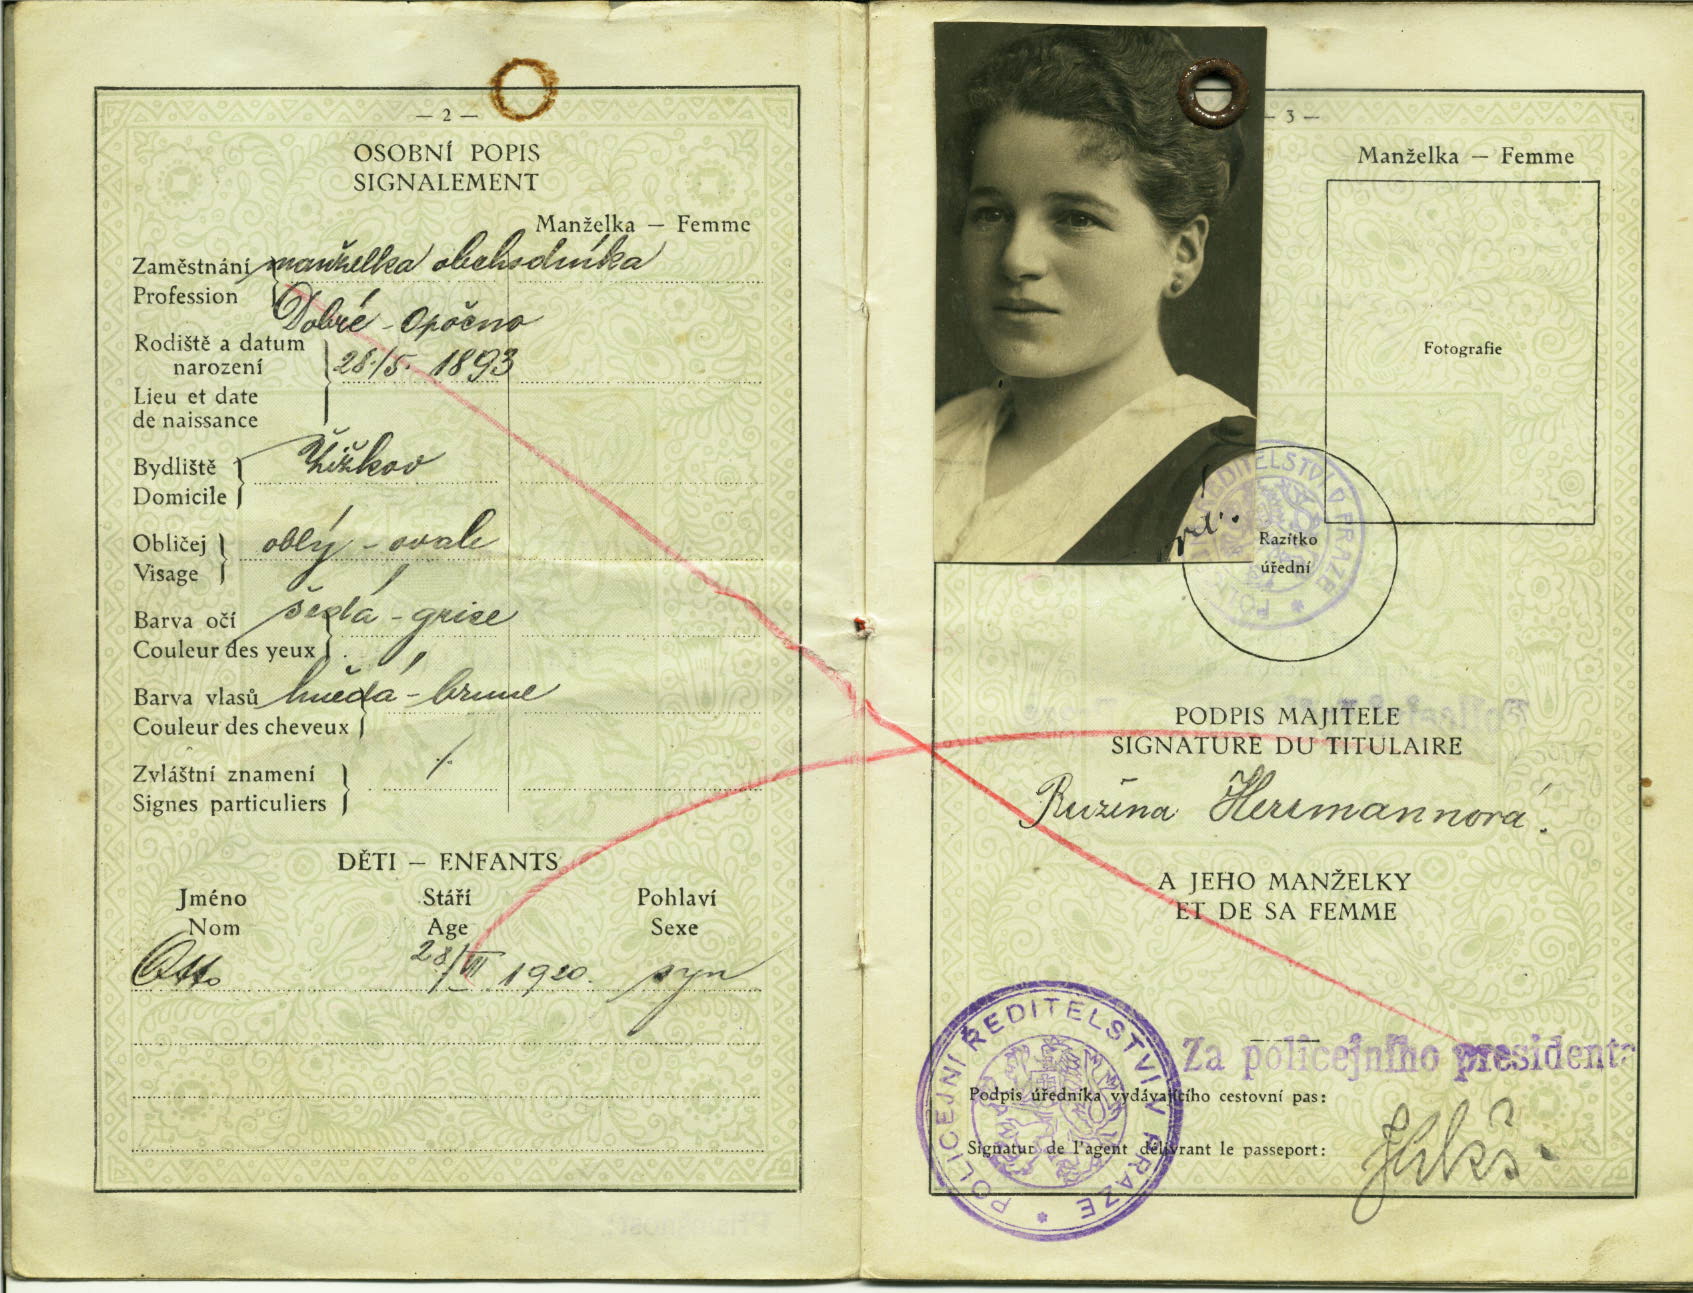 — 2 —
OSOBNÍ POPIS
SIGNALEMENT
Manželka — Femme
Zaměstnání manželka obchodníka
Profession
Dobré - Opočno
Rodiště a datum
narození 28./5. 1893
Lieu et date
de naissance
Bydliště Žižkov
Domicile
Obličej oblý - ovale
Visage
Barva očí šedá - grise
Couleur des yeux
Barva vlasů hnědá - brune
Couleur des cheveux
Zvláštní znamení
Signes particuliers
DĚTI — ENFANTS
Jméno Stáří Pohlaví
Nom Age Sexe
Otto 28/VII 1920. syn
— 3 —
Manželka — Femme
Fotografie
POLICEJNÍ ŘEDITELSTVÍ V PRAZE
Razítko
úřední
PODPIS MAJITELE
SIGNATURE DU TITULAIRE
Ružena Herrmannová.
A JEHO MANŽELKY
ET DE SA FEMME
POLICEJNÍ ŘEDITELSTVÍ V PRAZE
Za policejního presidenta
Podpis úředníka vydávajícího cestovní pas:
Signatur de l'agent délivrant le passeport: